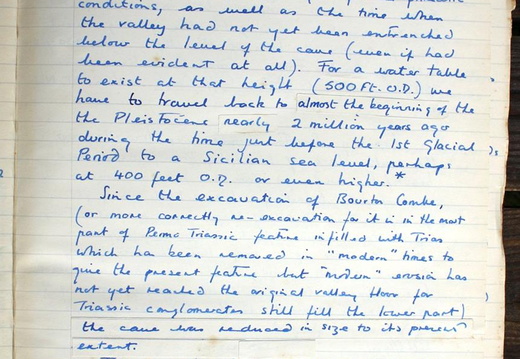 conditions, as well as the time when
the valley had not yet been entrenched
below the level of the cave (even if had
been evident at all). For a water table
to exist at that height (500 Ft. O.D.) we
have to travel back to almost the beginning of the
the Pleistocene nearly 2 million years ago
during the time just before the 1st Glacial
Period to a Sicilian sea level, perhaps
at 400 feet O.D. or even higher.*
Since the excavation of Bourton Combe,
(or more correctly re-excavation for it is in the most
part of Permo Triassic feature infilled with Trias
which has been removed in "modern" times to
give the present feature but "modern" erosion has
not yet reached the original valley floor for
Triassic conglomerates still fill the lower part)
the cave was reduced in size to its present
extent.